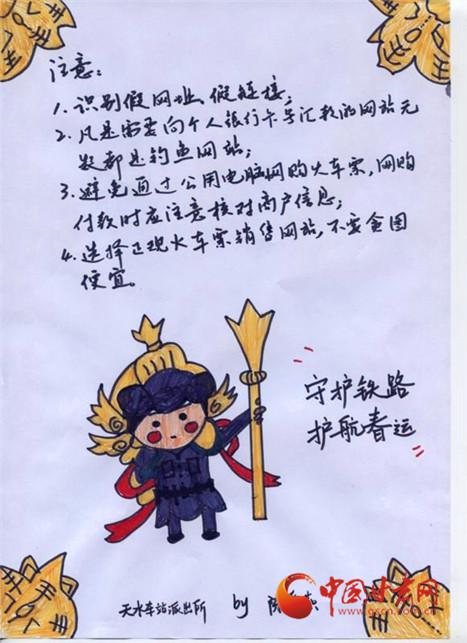 注意:
1.识别假网址、假链接;
2.凡是需要向个人银行卡号汇款的网站无
疑都是钓鱼网站;
3.避免通过公用电脑网购火车票,网购
付款时应注意核对商户信息;
4.选择正规火车票销售网站,不要贪图
便宜。
守护铁路
护航春运
天水车站派出所 by
中国甘肃网
www.gscn.com.cn